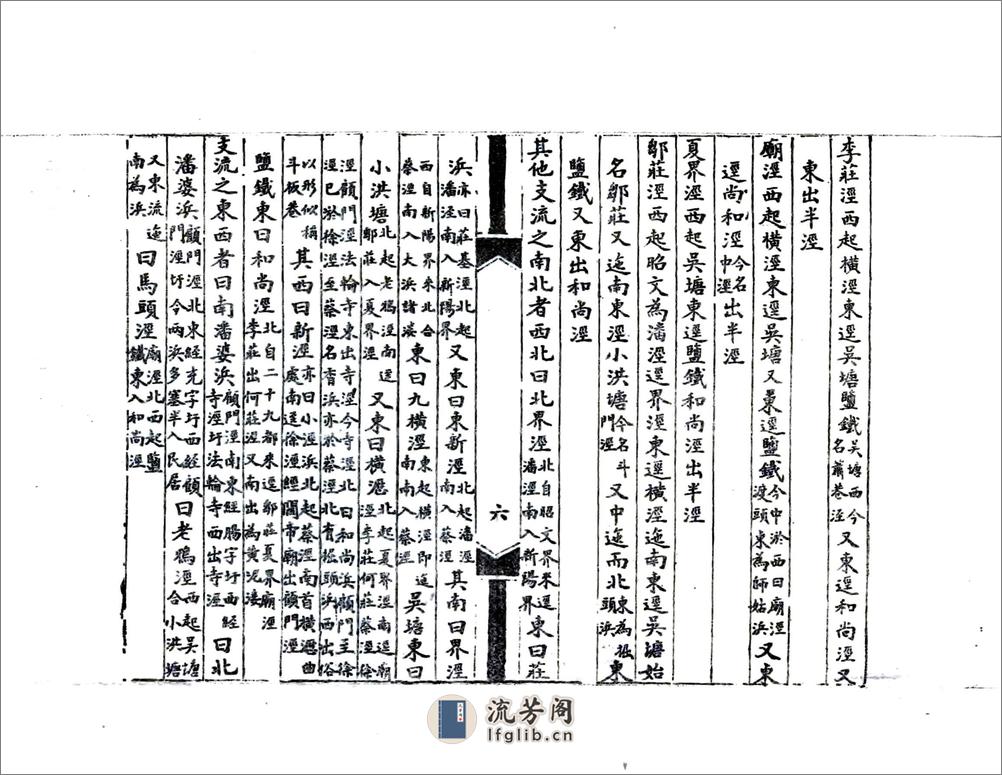 李莊涇西起橫涇東逕吳塘鹽鐵吳塘西今名蕭巷涇又東逕和尚涇又
東出半涇
廟涇西起橫涇東逕吳塘又東逕鹽鐵今中淤西曰廟涇渡頭東為師姑浜又東
逕尚和涇今名中涇出半涇
夏界涇西起吳塘東逕鹽鐵和尚涇出半涇
鄒莊涇西起昭文為潘涇逕界涇東逕橫涇迤南東逕吳塘始
名鄒莊又迤南東涇小洪塘今名斗門涇又中迤而北東為掘頭浜東
鹽鐵又東出和尚涇
其他支流之南北者西北曰北界涇北自昭文界來逕潘涇南入新陽界東曰莊
六
浜亦曰莊基涇北起潘涇南入新陽界又東曰東新涇北起潘涇南入蔡涇其南曰界涇
西自新陽界來北合蔡涇南入大浜諸溪東曰九橫涇東起橫涇即迤南南入蔡涇吳塘東曰
小洪塘北起老鴉涇南逕鄒莊入夏界涇又東曰橫瀝北起夏界涇南逕廟涇李莊何莊蔡涇徐
涇顧門涇法輪寺東出寺涇今寺涇北曰和尚浜顧門至徐涇已淤徐涇至蔡涇名杳浜亦於蔡涇北有掘頭浜西出俗
以形似稱斗板巷其西曰新涇亦曰小涇浜北起蔡涇南首橫瀝曲處南逕徐涇經關帝廟出顧門涇
鹽鐵東曰和尚涇北自二十九都來逕鄒莊夏界廟涇李莊出何莊涇又南出為黃泥漊
支流之東西者曰南潘婆浜顧門涇南東經腸字圩西經寺涇圩法輪寺西出寺涇曰北
潘婆浜顧門涇北東經克字圩西經顧門涇圩今兩浜多塞半入民居曰老鴉涇西起吳塘合小洪塘
又東流迤南為浜曰馬頭涇廟涇北西起鹽鐵東入和尚涇
流芳阁
lfglib.cn